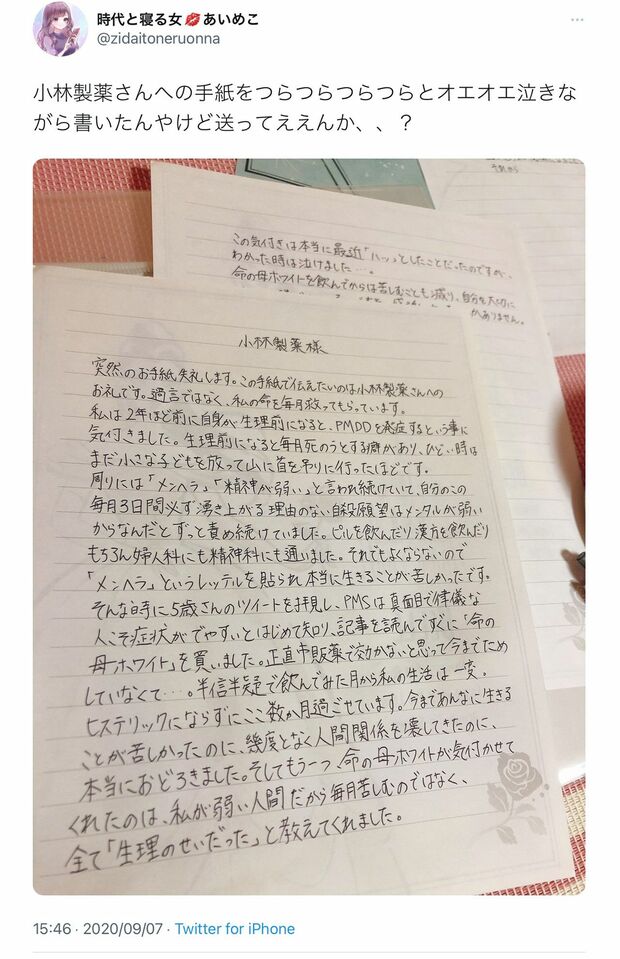 時代と寝る女💋あいめこ
@zidaitoneruonna
小林製薬さんへの手紙をつらつらつらつらとオエオエ泣きな
がら書いたんやけど送ってええんか、、？
それから
この気付きは本当に最近「ハッ」としたことだったのですが、
わかった時は泣けました…。
命の母ホワイトを飲んでからは苦しむことも減り、自分を大切に
がありません。
小林製薬様
突然のお手紙失礼します。この手紙で伝えたいのは小林製薬さんへの
お礼です。過言ではなく、私の命を毎月救ってもらっています。
私は2年ほど前に自身が生理前になると、PMDDを発症するという事に
気付きました。生理前になると毎月死のうとする癖があり、ひどい時は
まだ小さな子どもを放って山に首を吊りに行ったほどです。
周りには「メンヘラ」「精神が弱い」と言われ続けていて、自分のこの
毎月3日間必ず湧き上がる理由のない自殺願望はメンタルが弱い
からなんだとずっと責め続けていました。ピルを飲んだり漢方を飲んだり
もちろん婦人科にも精神科にも通いました。それでもよくならないので
「メンヘラ」というレッテルを貼られ本当に生きることが苦しかったです。
そんな時に5歳さんのツイートを拝見し、PMSは真面目で律儀な
人こそ症状がでやすいとはじめて知り、記事を読んですぐに「命の
母ホワイト」を買いました。正直市販薬で効かないと思って今までため
していなくて…。半信半疑で飲んでみた月から私の生活は一変。
ヒステリックにならずにここ数か月過ごせています。今まであんなに生きる
ことが苦しかったのに、幾度となく人間関係を壊してきたのに、
本当におどろきました。そしてもう一つ、命の母ホワイトが気付かせて
くれたのは、私が弱い人間だから毎月苦しむのではなく、
全て「生理のせいだった」と教えてくれました。
15:46 · 2020/09/07 · Twitter for iPhone